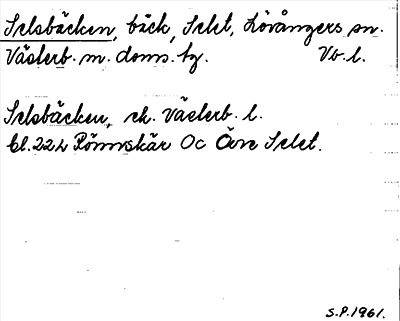 Selsbäcken, bäck, Selet, Lövångers sn.
Västerb. m. doms. tg. Vb. l.
Selsbäcken, ek. Västerb. l.
bl. 22 h Rönnskär Oc Övre Selet.
S.P. 1961.